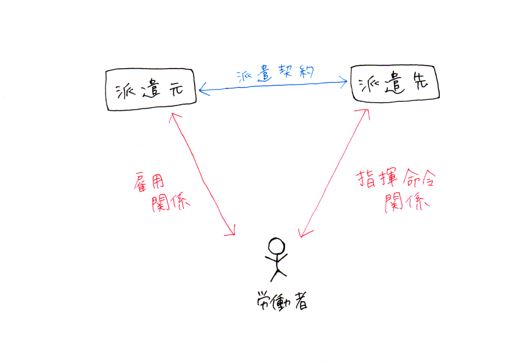 派遣契約
派遣元
派遣先
雇用
関係
指揮命令
関係
労働者